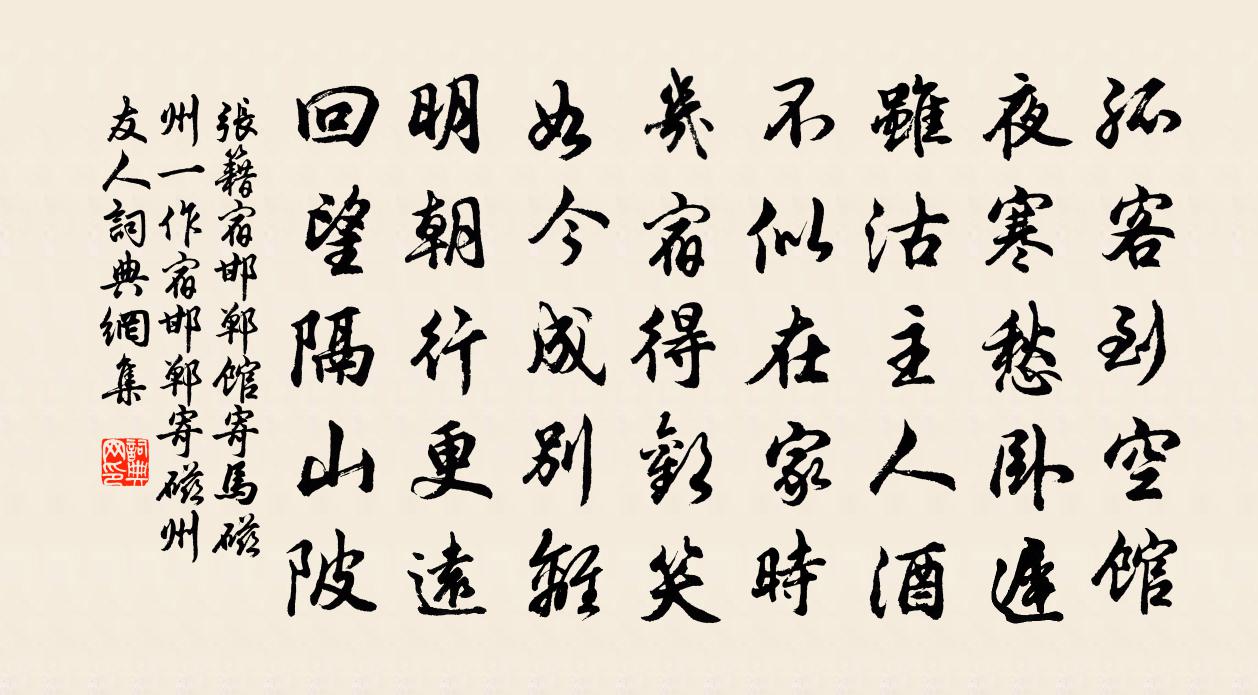 孤客到空館
夜寒愁臥遲
雖沽主人酒
不似在家時
幾宿得歡笑
如今成別離
明朝行更遠
回望隔山陂
張籍宿邯鄲館寄馬磁
州一作宿邯鄲寄磁州
友人詞典網集
詞典網印